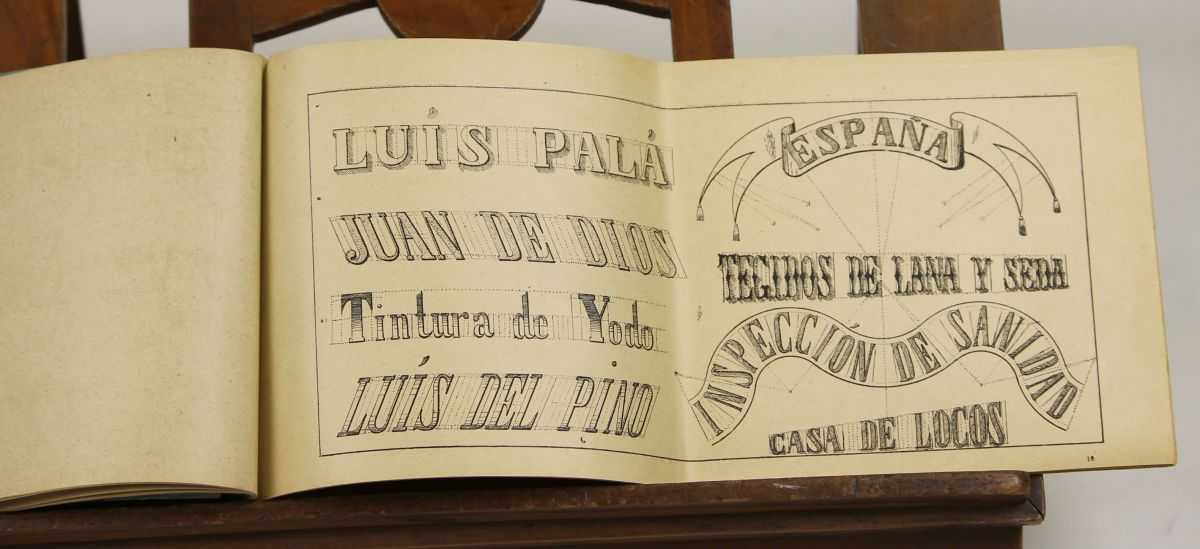 LUÍS PALÁ
JUAN DE DIOS
Tintura de Yodo
LUÍS DEL PINO
ESPAÑA
TEGIDOS DE LANA Y SEDA
INSPECCIÓN DE SANIDAD
CASA DE LOCOS